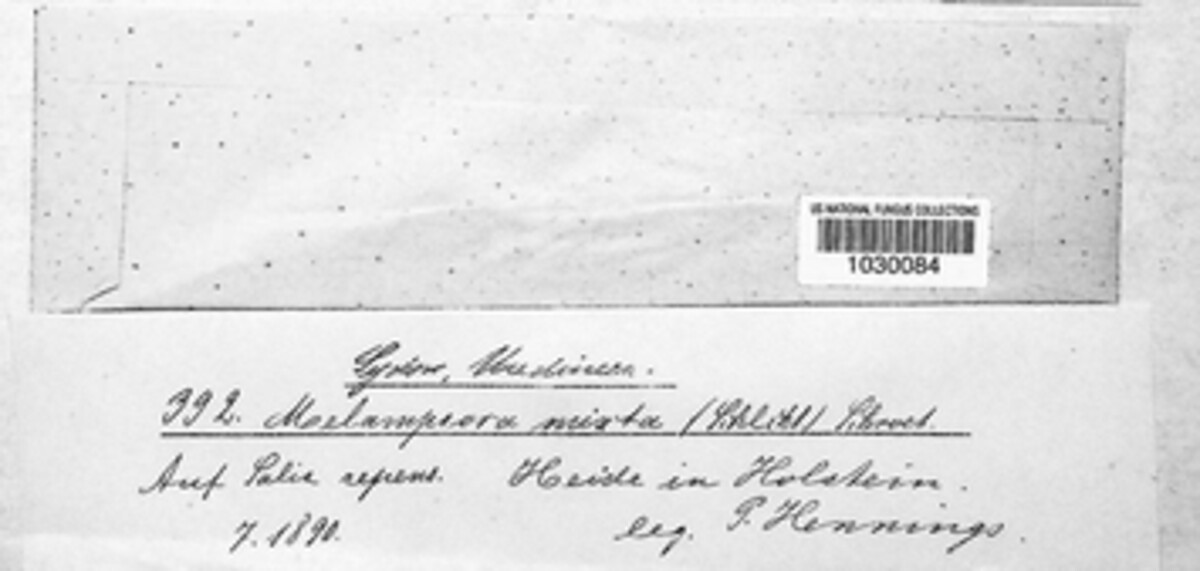 US NATIONAL FUNGUS COLLECTIONS
1030084
Sydow, Uredineen.
392. Melampsora mixta (Schlcht) Schroet.
Auf Salix repens. Heide in Holstein.
7. 1890. leg. P. Hennings.